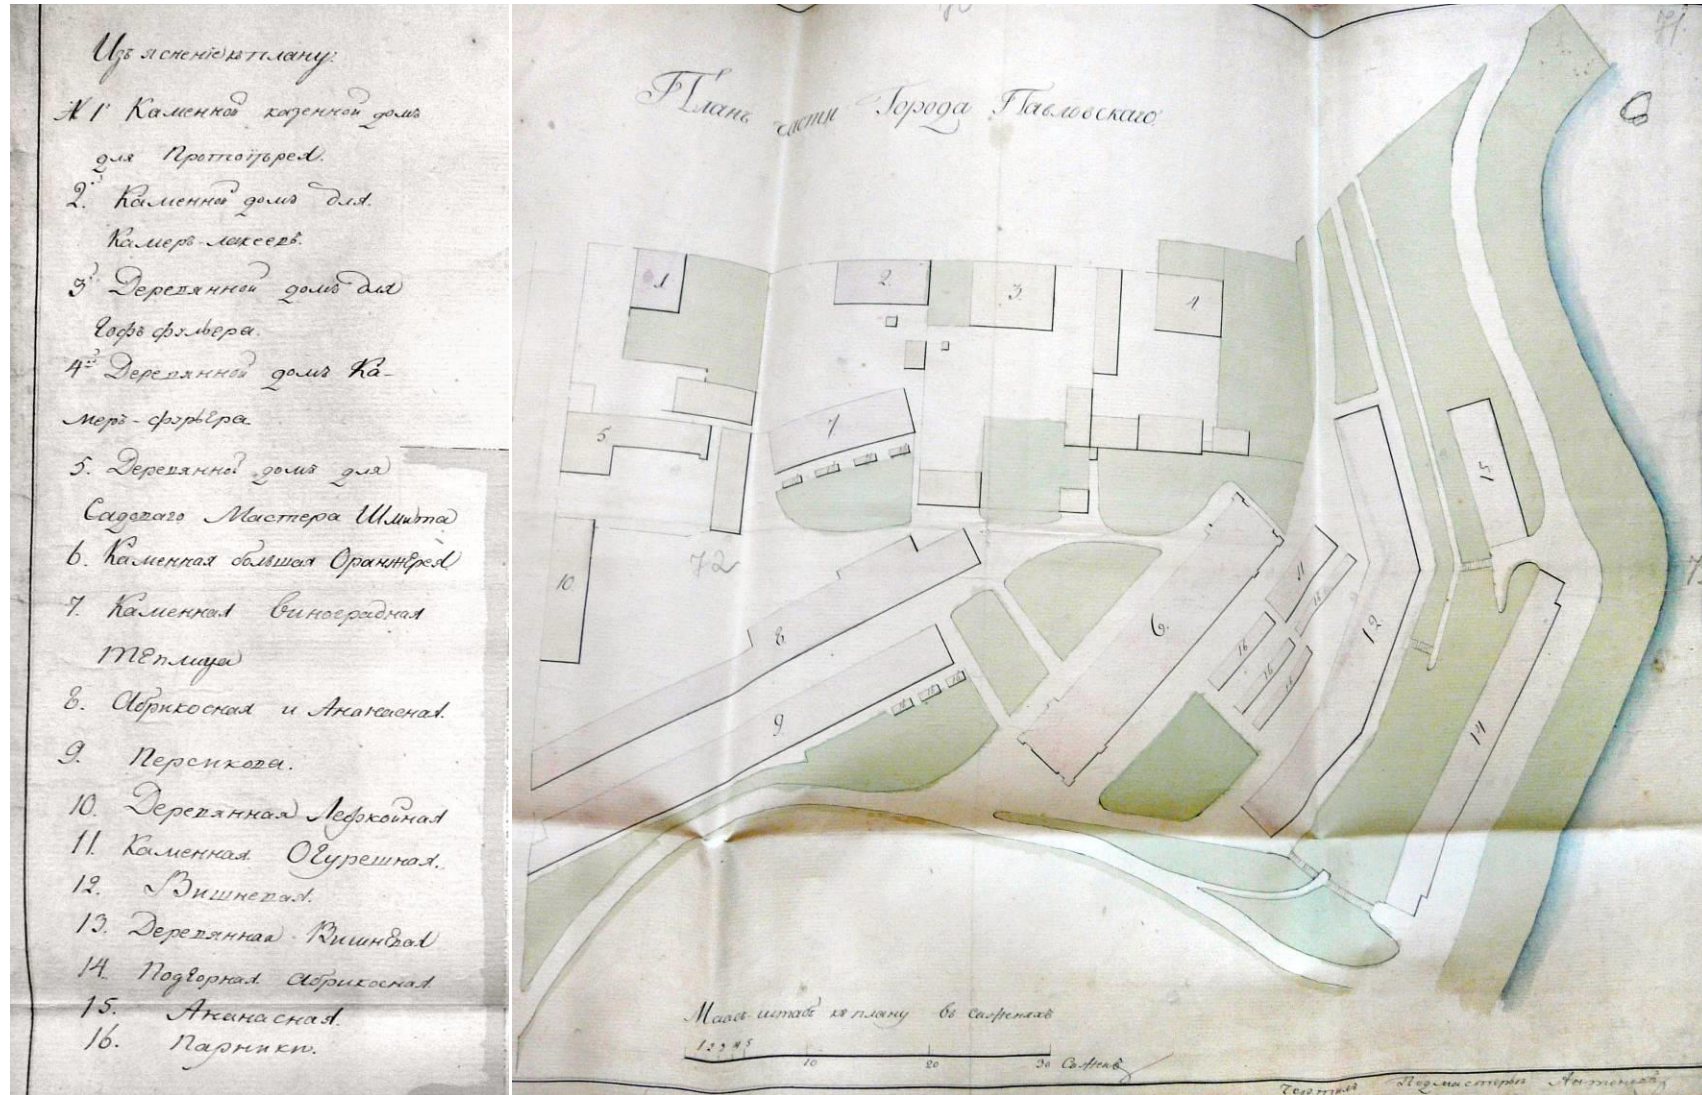 Изъясненіе къ плану:
№ 1й Каменной козенной домъ
для Протоіерея.
2й Каменной домъ для
Камеръ-лакеевъ.
3й Деревянной домъ для
Гофъ фурьера.
4й Деревянной домъ Ка-
меръ-фурьера
5. Деревянной домъ для
Садоваго Мастера Шмита
6. Каменная большая Оранжерея
7. Каменная Виноградная
теплица
8. Абрикосная и Ананасная.
9. Персикова.
10. Деревянная Левкойная
11. Каменная Огурешная.
12. Вишневая.
13. Деревянная Вишневая
14. Подгорная Абрикосная
15. Ананасная.
16. Парники.
71.
Планъ части Города Павловскаго.
1
2.
3.
4
5
7
15
72
10
11
6.
8
12
16
16
9
14
Масъ-штабъ къ плану въ саженяхъ
1 2 3 4 5
10
20
30 Саженъ
Чертилъ Подмастерья Антоновъ